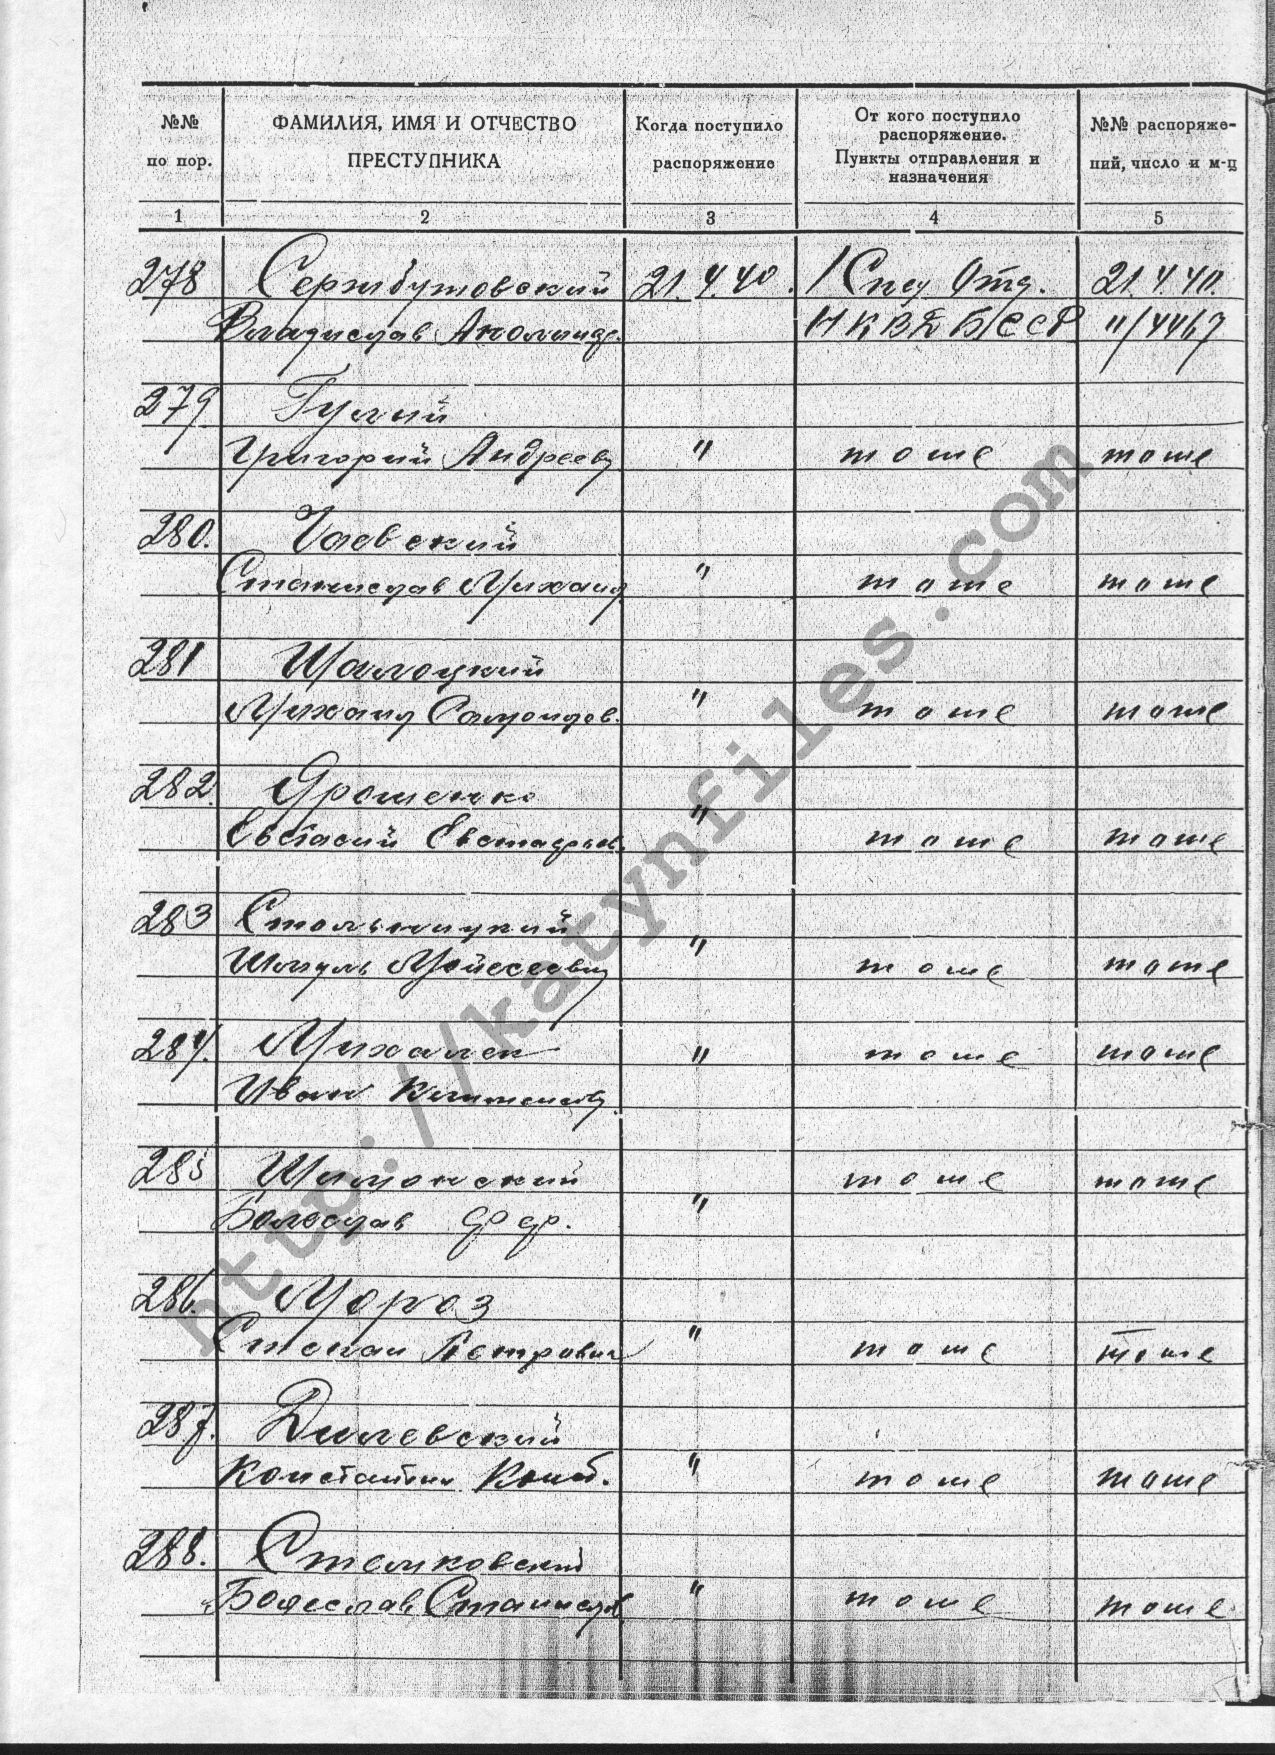 №№ по пор.
ФАМИЛИЯ, ИМЯ И ОТЧЕСТВО ПРЕСТУПНИКА
Когда поступило распоряжение
От кого поступило распоряжение. Пункты отправления и назначения
№№ распоряжений, число и м-ц
1 2 3 4 5
278 Сержбутовский 21.4.40. 1 Спец Отд. 21.4.40.
Владислав НКВД БССР
279 Гулий
Григорий Андреев " тоже тоже
280. Чаевский
Станислав Михаил " тоже тоже
281 Шалоцкий
Михаил " тоже тоже
282. Ярошенко "
Евстафьев. тоже тоже
283 Стольницкий "
Шмуль тоже тоже
284. Михалек " тоже тоже
Иван Климентов
285 Шиманский тоже тоже
Болеслав "
286. Мороз "
Степан Петрович тоже тоже
287. Дилевский "
Константин Конст. тоже тоже
288. Стемковский
Болеслав Станислав " тоже тоже
http://katynfiles.com